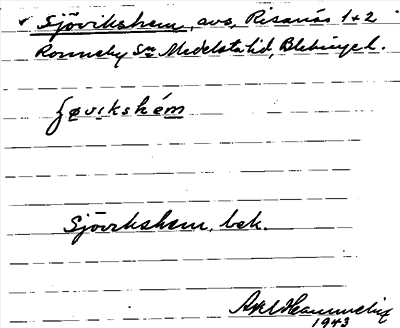 ✓ Sjövikshem, avs, Risanäs 1+2
Ronneby Sn Medelsta hd, Blekinge l.
ʃøvikshém
Sjövikshem, bek.
Axel Hammelin
1943